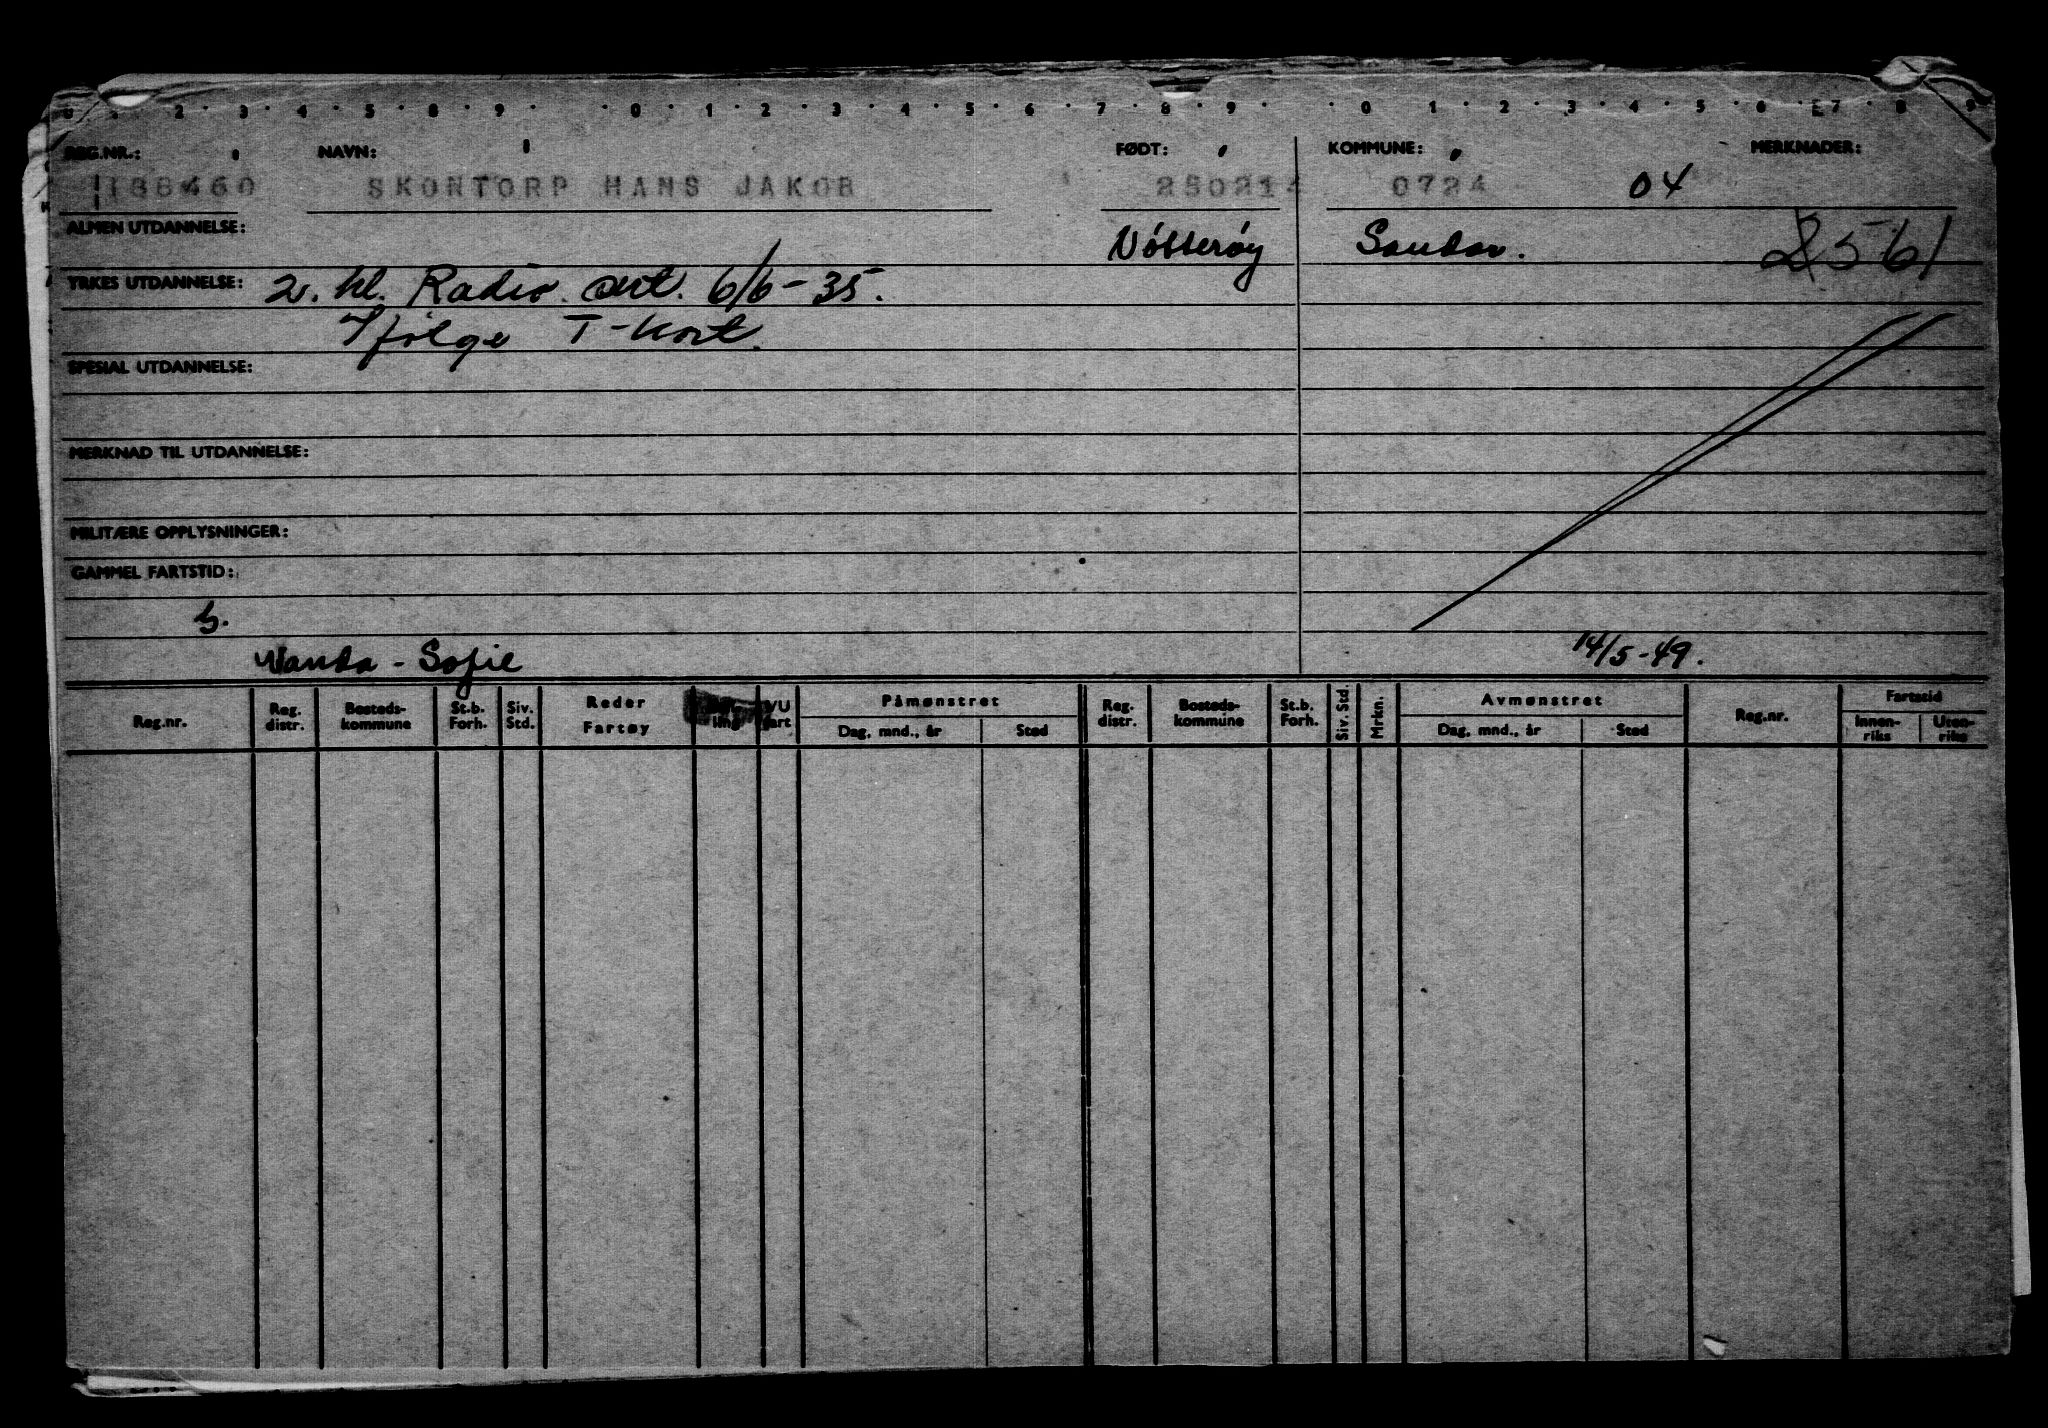 0 . . 2 . 3 . 4 . 5 . 8 . 9 . . 0 . 1 . 2 . 3 . 4 . 5 . 6 . 7 . 8 . 9 . . 0 . 1 . 2 . 3 . 4 . 5 . 6 . 7 . 8 . 9
REG.NR.: NAVN: FØDT: KOMMUNE: MERKNADER:
188460 SKONTORP HANS JAKOB 250214 0724 04
ALMEN UTDANNELSE: Nötterøy Sandar. 2561
YRKES UTDANNELSE: 2. kl. Radio. sert. 6/6-35.
Ifølge T-kort.
SPESIAL UTDANNELSE:
MERKNAD TIL UTDANNELSE:
MILITÆRE OPPLYSNINGER:
GAMMEL FARTSTID:
Wanda - Sofie 14/5-49.
Reg.nr. Reg. distr. Bosteds-kommune St.b. Forh. Siv. Std. Reder Fartøy Påmønstret Dag, mnd., år Sted Reg. distr. Bosteds-kommune St.b. Forh. Siv. Std. Mrkn. Avmønstret Dag, mnd., år Sted Reg.nr. Fartstid Innen-riks Uten-riks